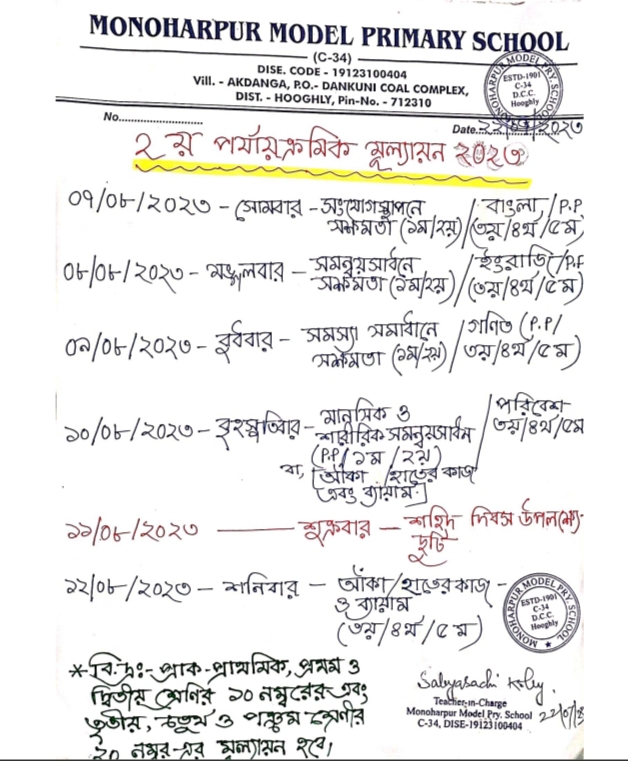 MONOHARPUR MODEL PRIMARY SCHOOL
(C-34)
DISE. CODE - 19123100404
Vill. - AKDANGA, P.O.- DANKUNI COAL COMPLEX,
DIST. - HOOGHLY, Pin-No. - 712310
MODEL PRY.
ESTD-1901
C-34
D.C.C.
Hooghly
No.
Date. 2023
২য় পর্যায়ক্রমিক মূল্যায়ন ২০২৩
০৭/০৮/২০২৩ - সোমবার - সংযোগস্থাপনে / বাংলা / P.P
সক্ষমতা (১ম/২য়) / (৩য়/৪র্থ/৫ম)
০৮/০৮/২০২৩ - মঙ্গলবার - সমন্বয়সাধনে / ইংরাজি / P.P
সক্ষমতা (১ম/২য়) / (৩য়/৪র্থ/৫ম)
০৯/০৮/২০২৩ - বুধবার - সমস্যা সমাধানে / গণিত (P.P/
সক্ষমতা (১ম/২য়) / ৩য়/৪র্থ/৫ম)
১০/০৮/২০২৩ - বৃহস্পতিবার - মানসিক ও / পরিবেশ
শারীরিক সমন্বয়সাধন / ৩য়/৪র্থ/৫ম
(P.P/১ম/২য়)
বা, [আঁকা/হাতের কাজ
এবং ব্যায়াম।]
১১/০৮/২০২৩ — শুক্রবার — শহিদ দিবস উপলক্ষ্যে
ছুটি
১২/০৮/২০২৩ - শনিবার - আঁকা/হাতের কাজ -
ও ব্যায়াম
(৩য়/৪র্থ/৫ম)
MONOHARPUR MODEL PRY. SCHOOL
ESTD-1901
C-34
D.C.C.
Hooghly
* বি.দ্রঃ- প্রাক-প্রাথমিক, প্রথম ও
দ্বিতীয় শ্রেণির ১০ নম্বরের এবং
তৃতীয়, চতুর্থ ও পঞ্চম শ্রেণীর
২০ নম্বর-এর মূল্যায়ন হবে।
Sabyasachi Koley
Teacher-in-Charge
Monoharpur Model Pry. School
C-34, DISE-19123100404